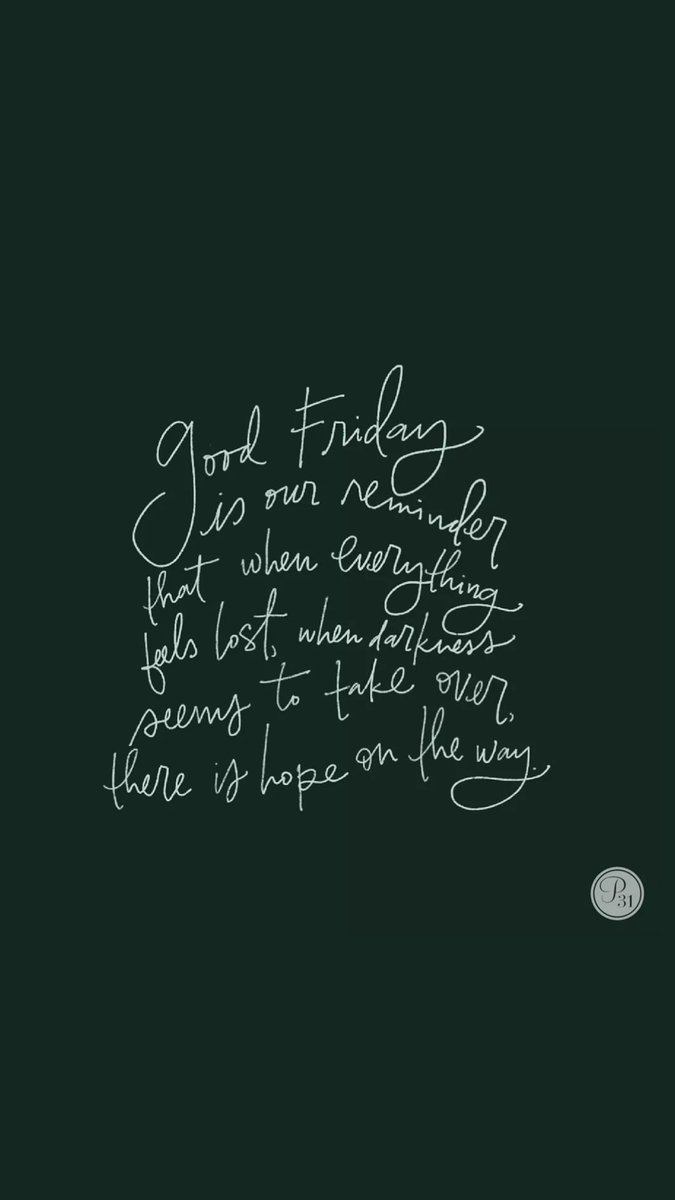 good Friday
is our reminder
that when everything
feels lost, when darkness
seems to take over,
there is hope on the way.
P31